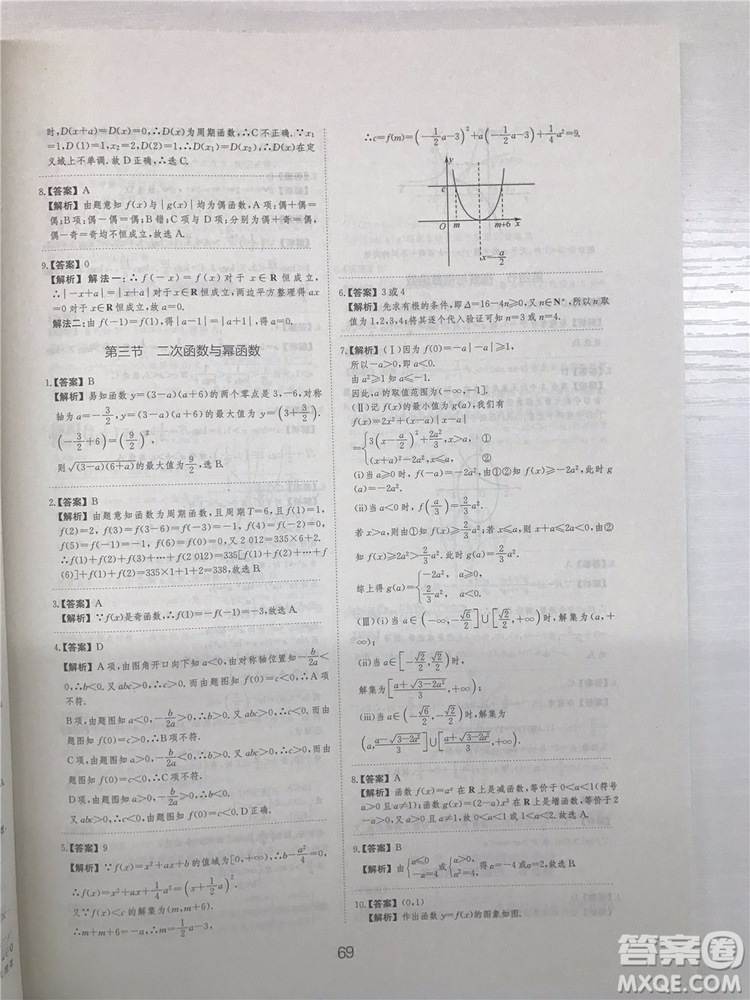 时,D(x+a)=D(x)=0,∴D(x)为周期函数,∴C不正确.∵x₁
=1,D(1)=1,x₂=2,D(2)=1,∴D(x₁)=D(x₂),∴D(x)在定
义域上不单调.故D正确,∴选C.
8.【答案】A
【解析】由题意知f(x)与|g(x)|均为偶函数,A项:偶+偶=
偶;B项:偶-偶=偶;C项与D项:分别为偶+奇=偶,
偶-奇=偶均不恒成立,故选A.
9.【答案】0
【解析】解法一:∴f(-x)=f(x)对于x∈R恒成立,
∴|-x+a|=|x+a|对于x∈R恒成立,两边平方整理得
ax=0,对于x∈R恒成立,故a=0.
解法二:由f(-1)=f(1)得|a-1|=|a+1|,得a=0.
第三节 二次函数与幂函数
1.【答案】B
【解析】易知函数y=(3-a)(a+6)的两个零点是3,-6,对称
轴为a=-3/2,y=(3-a)(a+6)的最大值为y=(3+3/2)·
(-3/2+6)=(9/2)²,
则√(3-a)(6+a)的最大值为9/2,选B.
2.【答案】B
【解析】由题意知函数为周期函数,且周期T=6,且f(1)=1,
f(2)=2,f(3)=f(3-6)=f(-3)=-1,f(4)=f(-2)=0,
f(5)=f(-1)=-1,f(6)=f(0)=0,又2 012=335×6+2.
∴f(1)+f(2)+f(3)+…+f(2 012)=335[f(1)+f(2)+…+
f(6)]+f(1)+f(2)=335×1+1+2=338,故选B.
3.【答案】A
【解析】∵f(x)是奇函数,∴f(1)=-f(-1)=-3,故选A.
4.【答案】D
【解析】A项,由图角开口向下知a<0,由对称轴位置知-b/2a
<0,∴b<0.又abc>0,∴c>0.而由题图知f(0)=c<0,∴A项
不符.
B项,由题图知a<0,-b/2a>0,∴b>0.又∵abc>0,∴c<0,而由
题图知f(0)=c>0,∴B项不符.
C项,由题图知a>0,-b/2a<0,∴b>0.又∵abc>0,∴c>0,而由
题图知f(0)=c<0,∴C项不符.
D项,由题图知a>0,-b/2a>0,∴b<0.又∵abc>0,∴c<0,
由题图知f(0)=c<0.D正确.
5.【答案】9
【解析】∵f(x)=x²+ax+b的值域为[0,+∞),∴b-a²/4=0,
∴f(x)=x²+ax+1/4a²=(x+1/2a)²,
又∵f(x)<c的解集为(m,m+6),
∴m+m+6=-a,∴m=-1/2a-3,
∴c=f(m)=(-1/2a-3)²+a(-1/2a-3)+1/4a²=9.
y
c
O m m+6 x
x=-a/2
6.【答案】3或4
【解析】先求有根的条件,即Δ=16-4n≥0,又n∈N*,所以n取
值为1,2,3,4;将其逐个代入验证可知n=3或n=4.
7.【解析】(Ⅰ)因为f(0)=-a|-a|≥1,
所以-a>0,即a<0.
由a²≥1知a≤-1.
因此,a的取值范围为(-∞,-1].
(Ⅱ)记f(x)的最小值为g(a),我们有
f(x)=2x²+(x-a)|x-a|
={3(x-a/3)²+2a²/3,x>a, ①
(x+a)²-2a²,x≤a, ②
(ⅰ)当a≥0时,f(-a)=-2a²,由①②知f(x)≥-2a²,此时
g(a)=-2a².
(ⅱ)当a<0时,f(a/3)=2/3a².
若x>a,则由①知f(x)≥2/3a²;若x≤a,则x+a≤2a<0,由②
知f(x)≥2a²>2/3a².此时g(a)=2/3a².
综上得g(a)={-2a²,a≥0,
2a²/3,a<0.
(Ⅲ)(ⅰ)当a∈(-∞,-√6/2]∪[√2/2,+∞)时,解集为(a,+
∞);
(ⅱ)当a∈[-√2/2,√2/2)时,
解集为[a+√3-2a²/3,+∞);
(ⅲ)当a∈(-√6/2,-√2/2)时,解集为
(a,a-√3-2a²/3]∪[a+√3-2a²/3,+∞).
8.【答案】A
【解析】函数f(x)=aˣ在R上是减函数,等价于0<a<1(符
合a>0且a≠1);函数g(x)=(2-a)x³在R上是增函数,等价于2
-a>0,又a>0且a≠1,故0<a<1或1<a<2,故选A.
9.【答案】B
【解析】由{a≤0
-a=4或{a>0
a²=4,得a=-4或a=2.故选B.
10.【答案】(0,1)
【解析】作出函数y=f(x)的图象如图.
69
答案圈
MXQE.COM